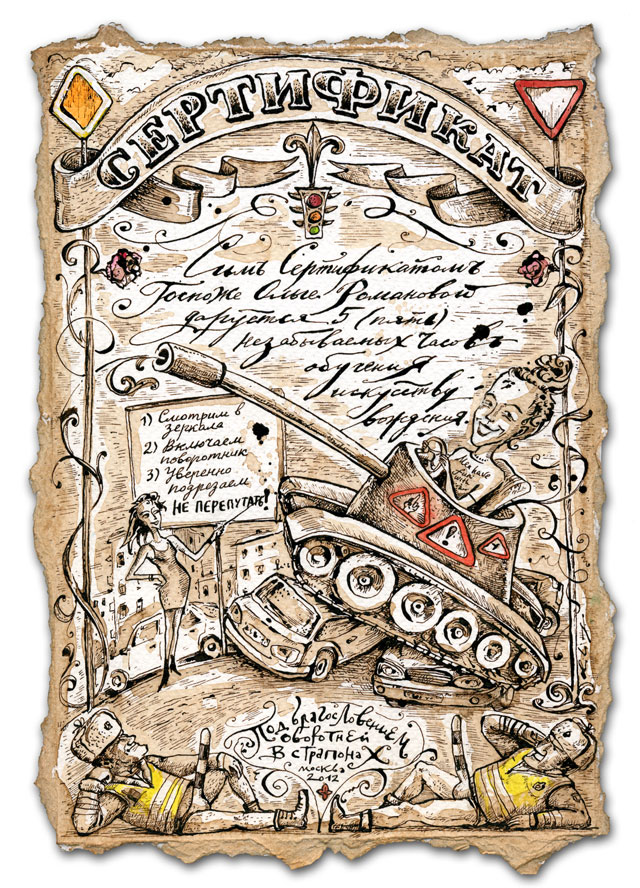 СЕРТИФИКАТ
Симъ Сертификатомъ
Госпоже Ольге Романовой
даруется 5 (пять)
незабываемых часовъ
обучения
искусству
вождения.
1) Смотрим в
зеркала
2) Включаем
поворотник
3) Уверенно
подрезаем
НЕ ПЕРЕПУТАТЬ!
Под благословением
оборотней
в страпонах
москва
2012